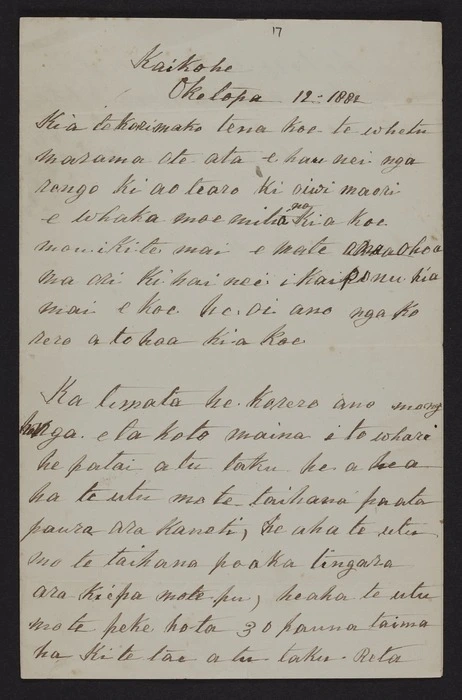 17
Kaikohe
Oketopa 12 : 1882
Kia te Korimako tena koe te whetu
marama ote ata e hau nei nga
rongo ki ao tearo ki oiwi maori
e whaka moemiti ana Kia koe
mou i Kite mai e mate ana o hoa
ma ori ki hai nei i kaiponu hia
mai e koe he oi ano nga Ko
rero a to hoa Kia Koe
Ka timata he Korero ano mo nga
hunga e la koto maina i to whare
he patai a tu taku he a he a
ha te utu mo te taihana paata
paura ara Kaneti, he aha te utu
mo te taihana poaka tingara
ara Kiepa mote pu, heaha te utu
mo te peke hota 30 pauna taima
ha Ki te tae a tu taku Reta